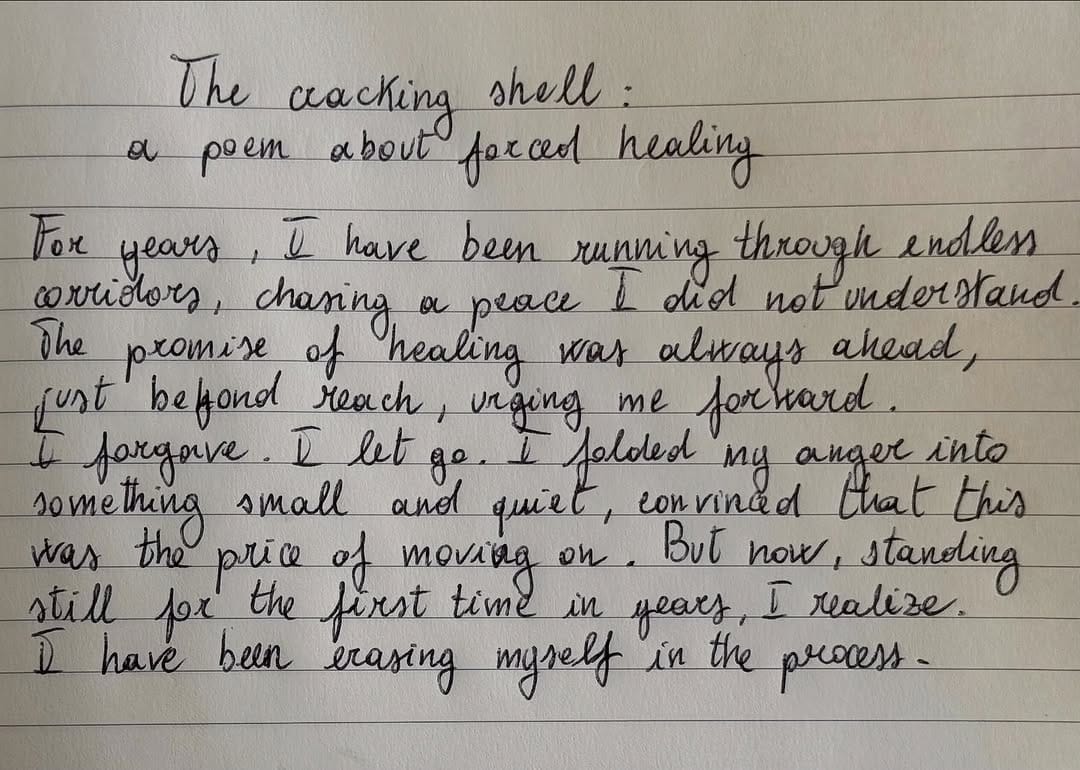 The cracking shell :
a poem about forced healing
For years, I have been running through endless
corridors, chasing a peace I did not understand.
The promise of healing was always ahead,
just beyond reach, urging me forward.
I forgave. I let go. I folded my anger into
something small and quiet, convinced that this
was the price of moving on. But now, standing
still for the first time in years, I realize.
I have been erasing myself in the process.